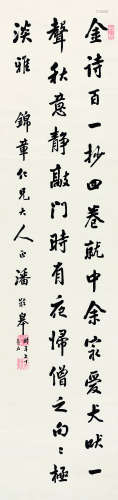 金诗百一抄四卷就中余最爱犬吠一
声秋意静敲门时有夜归僧之句句极
淡雅 锦章仁兄大人正 潘龄皋